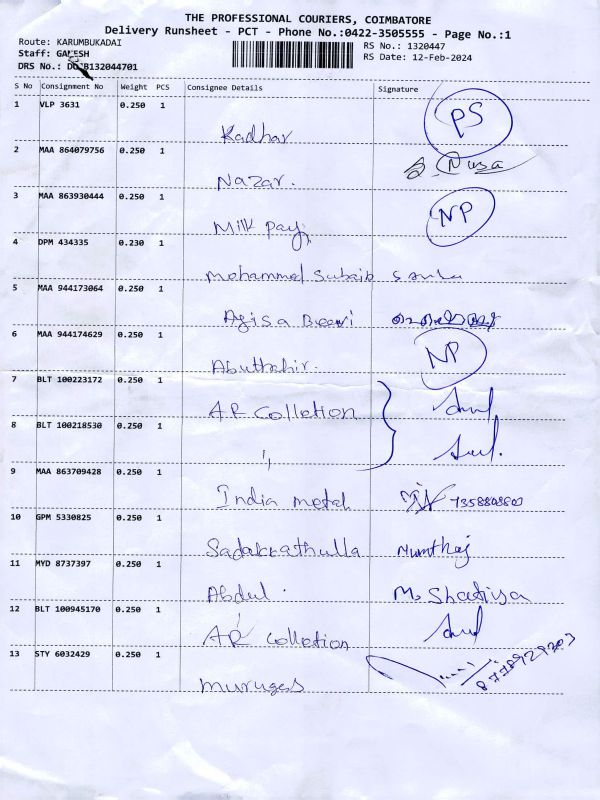 THE PROFESSIONAL COURIERS, COIMBATORE
Delivery Runsheet - PCT - Phone No.:0422-3505555 - Page No.:1
Route: KARUMBUKADAI
RS No.: 1320447
Staff: GANESH
RS Date: 12-Feb-2024
DRS No.: B132044701
S No Consignment No Weight PCS Consignee Details Signature
1 VLP 3631 0.250 1
Kadhar PS
2 MAA 864079756 0.250 1
Nazar.
3 MAA 863930444 0.250 1
Milk Pay NP
4 DPM 434335 0.230 1
Mohammed Subaib
5 MAA 944173064 0.250 1
Beevi
6 MAA 944174629 0.250 1
Abuthahir. NP
7 BLT 100223172 0.250 1
AR Colletion
8 BLT 100218530 0.250 1
"
9 MAA 863709428 0.250 1
India metal
10 GPM 5330825 0.250 1
Sadakkathulla Mumthaj
11 MYD 8737397 0.250 1
Abdul.
12 BLT 100945170 0.250 1
AR Colletion
13 STY 6032429 0.250 1
Muruges